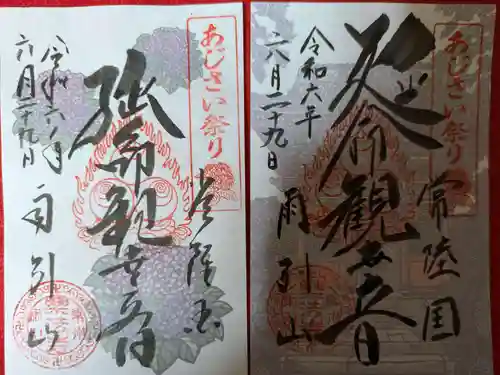 あじさい祭り
常陸国
延命観世音
雨引山
令和六年
六月二十九日
あじさい祭り
常陸国
延命観世音
雨引山
令和六年
六月二十九日